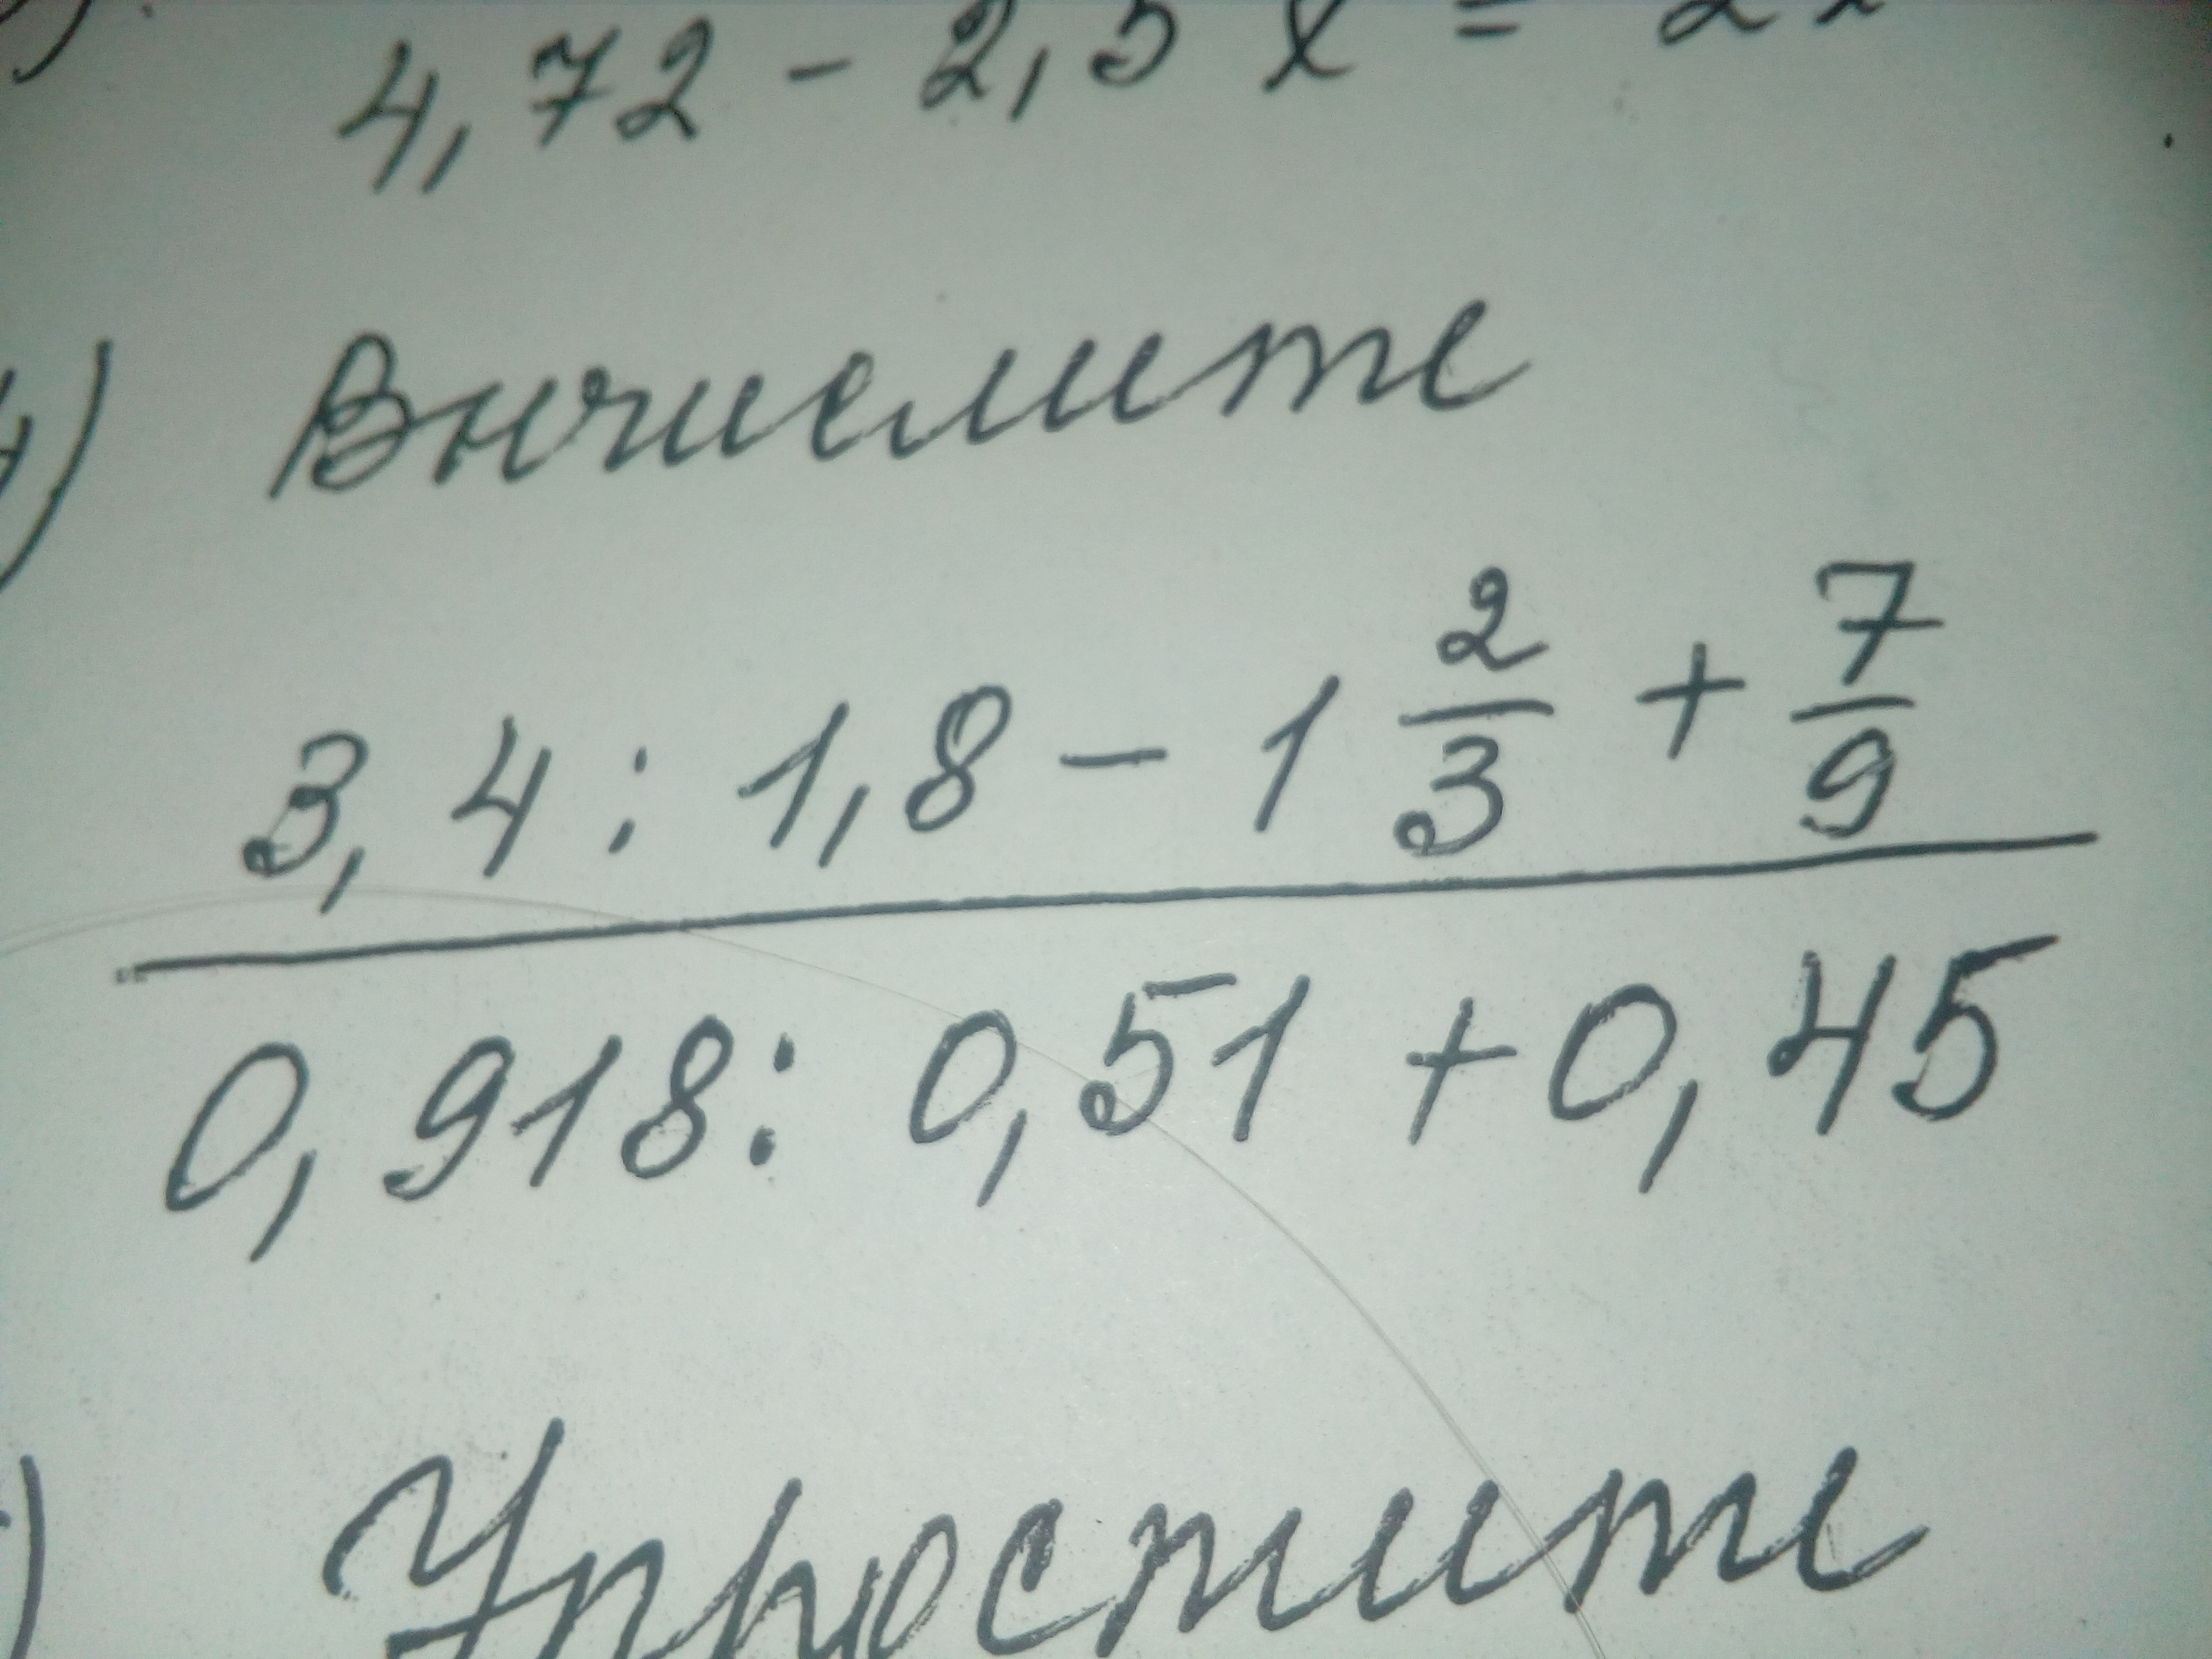 4,72 - 2,5 x = 2
Вычислите
3,4 : 1,8 - 1 2/3 + 7/9
0,918 : 0,51 + 0,45
Упростите